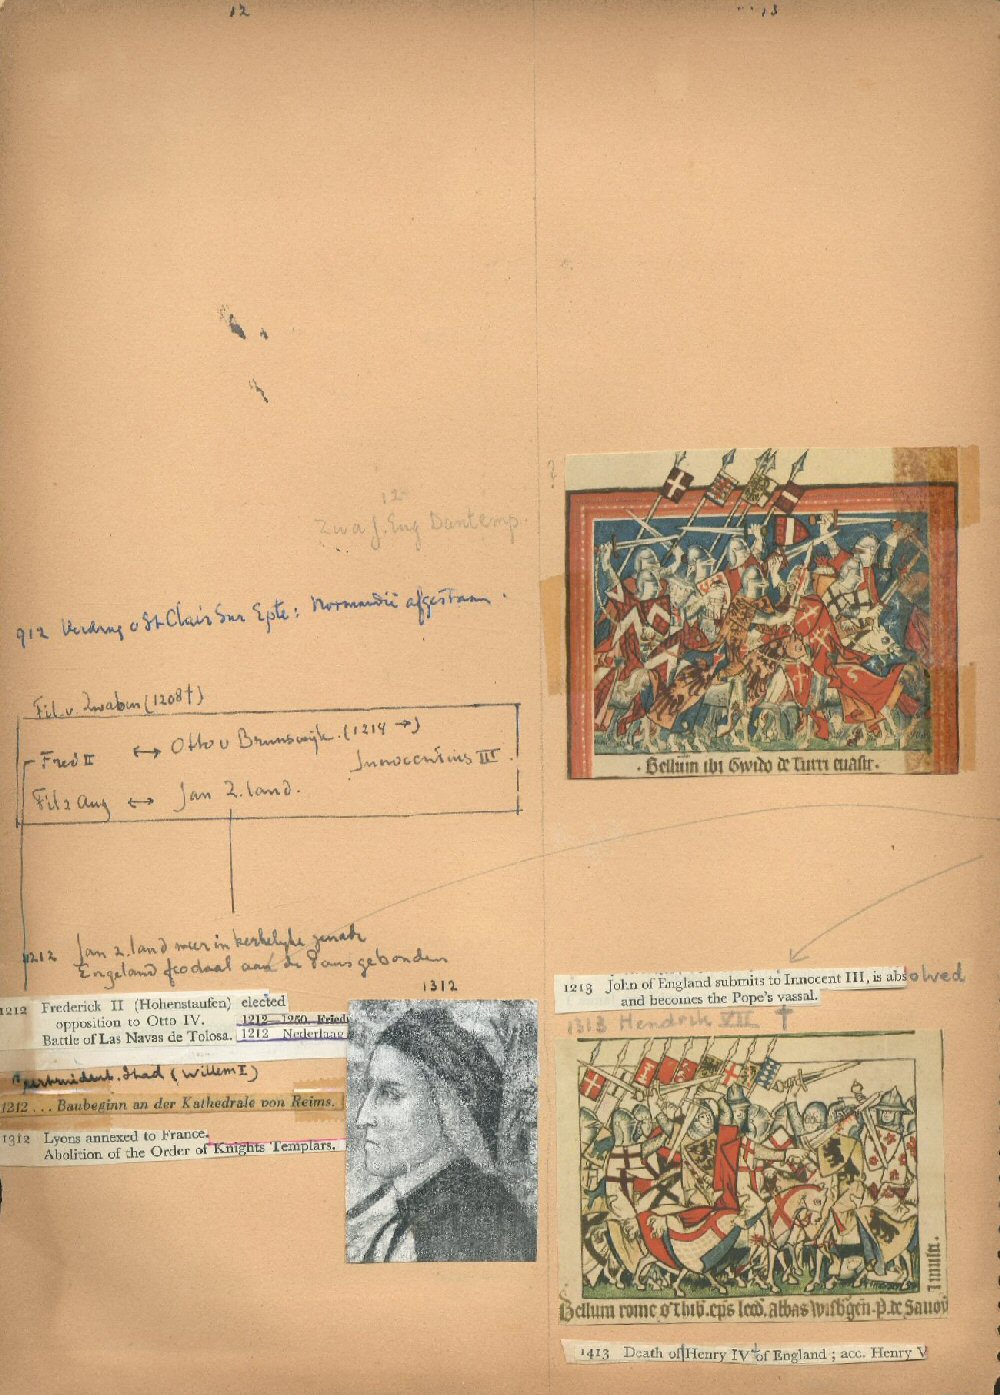 12
13
12
912 Verdrag v St Clair Sur Epte: Normandië afgestaan.
Fil. v. Zwaben (1208†)
Fred II ↔ Otto v Brunswijk. (1214 →)
Innocentius III.
Fil 2 Aug ↔ Jan Z. land.
1212 Jan z. land weer in kerkelyke genade
Engeland feodaal aan de Paus gebonden
1212 Frederick II (Hohenstaufen) elected
opposition to Otto IV.
Battle of Las Navas de Tolosa.
1212—1250 Friedr
1212 Nederlaag
(Willem I)
1212 ... Baubeginn an der Kathedrale von Reims.
1312 Lyons annexed to France.
Abolition of the Order of Knights Templars.
1312
?
· Bellum ibi Gwido de Turri euasit ·
1213 John of England submits to Innocent III, is absolved
and becomes the Pope's vassal.
1313 Hendrik VII †
Bellum rome
de Sauoy
1413 Death of Henry IV of England; acc. Henry V